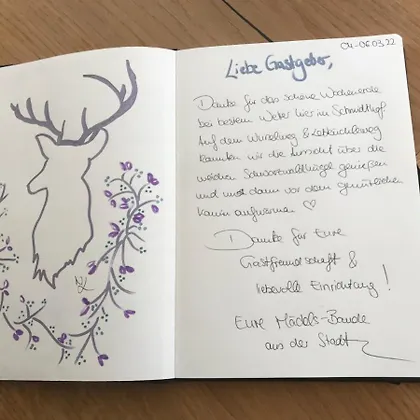 04.-06.03.22
Liebe Gastgeber,
Danke für das schöne Wochenende
bei bestem Wetter hier im Schmidthof.
Auf dem Wurzelweg &
konnten wir die Aussicht über die
weichen Schwarzwaldhügel genießen
und uns dann vor dem gemütlichen
Kamin aufwärmen. ♡
Danke für Eure
Gastfreundschaft &
liebevolle Einrichtung!
Eure Mädels-Bande
aus der Stadt